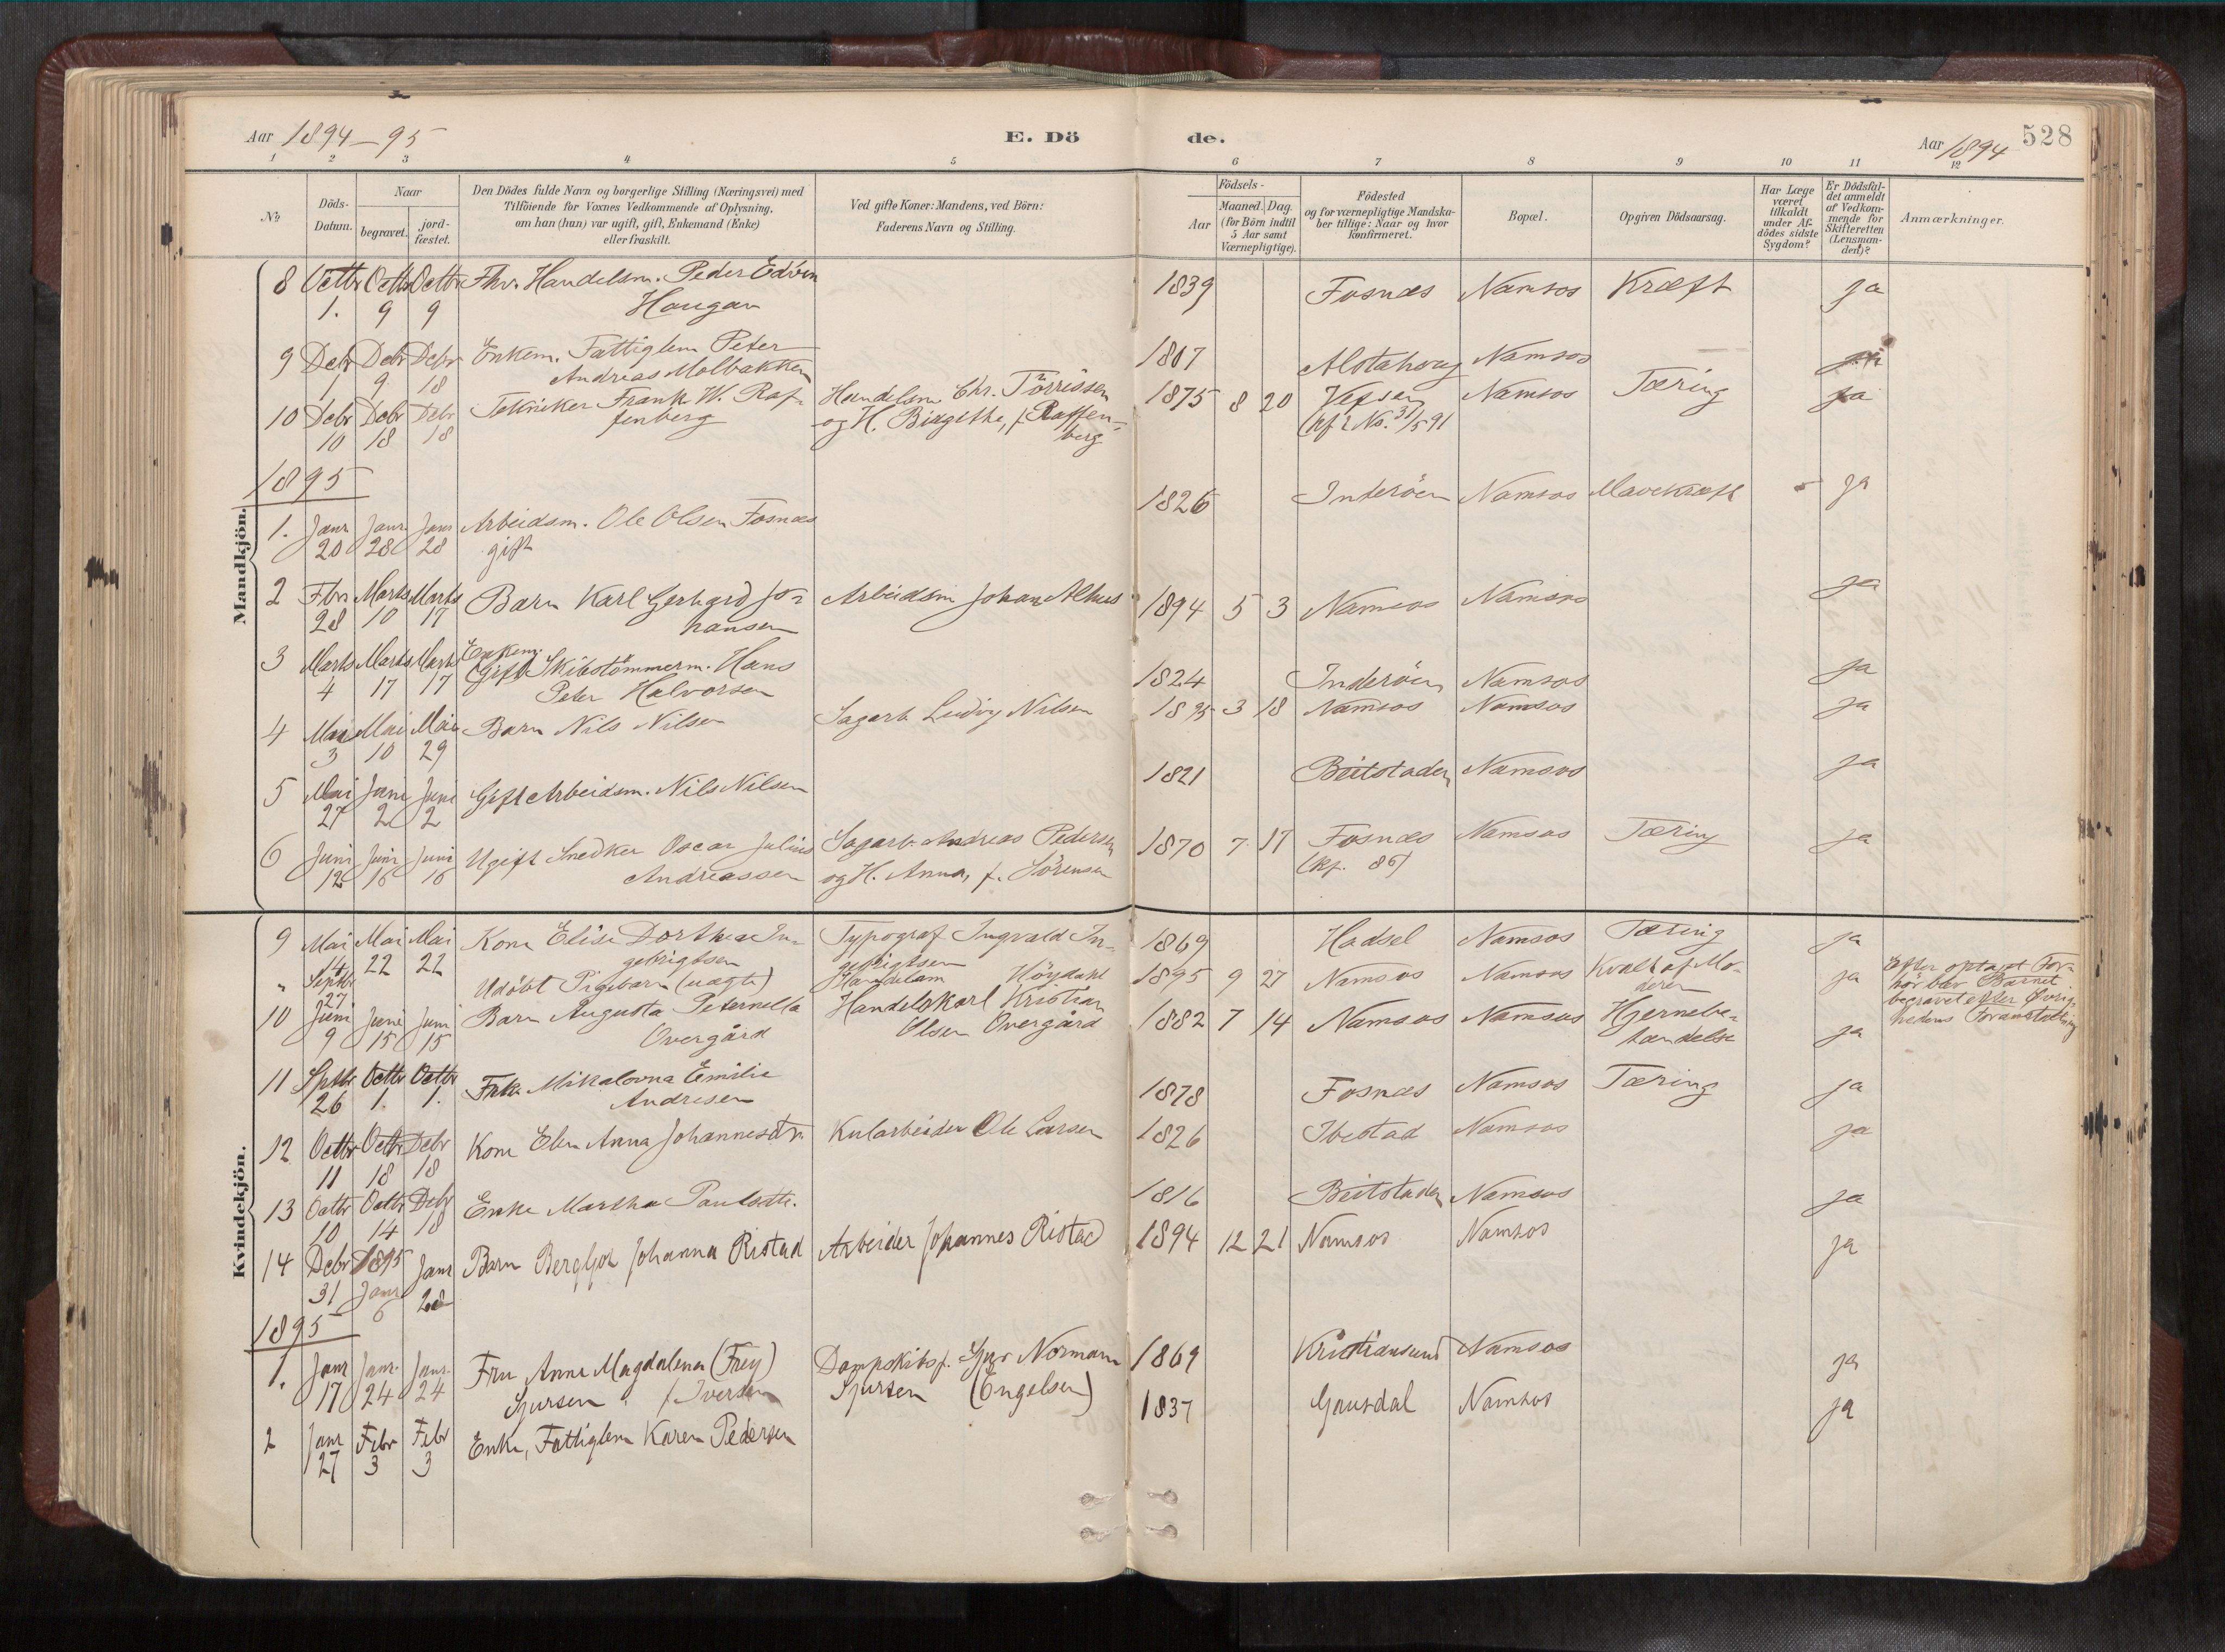 Aar 1894-95
E. Dö de.
Aar 1894
528
1 2 3 4 5 6 7 8 9 10 11 12
No
Döds-Datum.
Naar
begravet.
jord-fæstet.
Den Dödes fulde Navn og borgerlige Stilling (Næringsvei) med
Tilföiende for Voxnes Vedkommende af Oplysning,
om han (hun) var ugift, gift, Enkemand (Enke)
eller fraskilt.
Ved gifte Koner: Mandens, ved Börn:
Faderens Navn og Stilling.
Födsels-
Aar
Maaned. Dag.
(for Börn indtil
5 Aar samt
Værnepligtige).
Födested
og for værnepligtige Mandska-
ber tillige: Naar og hvor
konfirmeret.
Bopæl.
Opgiven Dödsaarsag.
Har Læge
været
tilkaldt
under Af-
dödes sidste
Sygdom?
Er Dödsfal-
det anmeldt
af Vedkom-
mende for
Skifteretten
(Lensman-
den)?
Anmærkninger.
Mandkjön.
8 Octbr Octbr Octbr Fhv. Handelsm. Peder Edvin 1839 Fosnæs Namsos Kræft ja
1. 9 9 Haugan
9 Debr Debr Debr Enkem. Fattiglem Peter 1807 Alstahoug Namsos
1 9 18 Andreas Molbakken
10 Debr Debr Debr Tekniker Frank W. Raf- Handelsm Chr. Törrissen 1875 8 20 Vefsen Namsos Tæring ja
10 18 18 fenberg og H. Birgithe, f. Raffen- (kf i Ns. 31/5 91
berg
1895
1. Janr Janr Janr Arbeidsm. Ole Olsen Fosnæs 1826 Inderöen Namsos Mavekræft - ja
20 28 28 gift
2 Fbr Marts Marts Barn Karl Gerhard Jo- Arbeidsm Johan Alhus 1894 5 3 Namsos Namsos ja
28 10 17 hansen
3 Marts Marts Marts Enkem. Gift Skibstömmerm. Hans 1824 Inderöen Namsos ja
4 17 17 Peter Halvorsen
4 Mai Mai Mai Barn Nils Nilsen Sagarb Ludvig Nilsen 1895 3 18 Namsos Namsos ja
3 10 29
5 Mai Juni Juni Gift Arbeidsm. Nils Nilsen 1821 Beitstaden Namsos ja
27 2 2
6 Juni Juni Juni Ugift Snedker Oscar Julius Sagarb. Andreas Pedersen 1870 7 17 Fosnæs Namsos Tæring ja
12 16 16 Andreassen og H. Anna, f. Sörensen (kf. 86)
Kvindekjön.
9 Mai Mai Mai Kone Elise Dorthea In- Typograf Ingvald In- 1869 Hadsel Namsos Tæring ja
14 22 22 gebrigtsen gebrigtsen
" Septbr Udöbt Pigebarn (uægte) Handelsm Höydahl 1895 9 27 Namsos Namsos Kvalt af Mo- ja Efter optaget For-
27 deren hör blev Barnet
begravet efter Övrig-
hedens Foranstaltning
10 Juni Juni Juni Barn Augusta Peternella Handelskarl Kristian 1882 7 14 Namsos Namsos Hjernebe- ja
9 15 15 Overgård Olsen Overgård tændelse
11 Sptbr Octbr Octbr Frk. Mikalovna Emilie 1878 Fosnæs Namsos Tæring ja
26 1. 1. Andresen
12 Octbr Octbr Debr Kone Elen Anna Johannesdtr. Kularbeider Ole Larsen 1826 Ibestad Namsos ja
11 18 18
13 Octbr Octbr Debr Enke Martha Paulsdtr. 1816 Beitstaden Namsos ja
10 14 18
14 Debr 1895 Janr Barn Bergljot Johanna Ristad Arbeider Johannes Ristad 1894 12 21 Namsos Namsos ja
31 Janr 6 28
1895
1. Janr Janr. Janr. Fru Anna Magdalena (Frey) Dampskibsf. Norman 1869 Kristiansund Namsos ja
17 24 24 Sjursen f. Iversen Sjursen (Engelsen)
2 Janr Febr Febr Enke, Fattiglem Karen Pedersen 1837 Gausdal Namsos ja
27 3 3